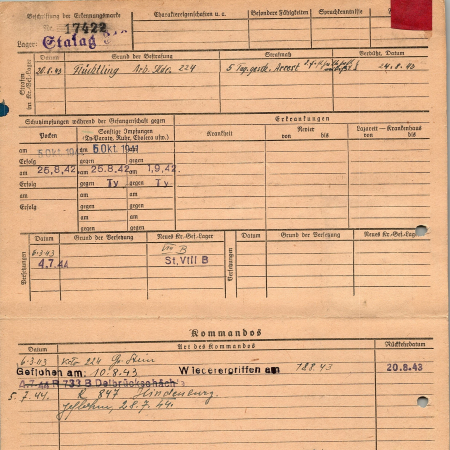 Beschriftung der Erkennungsmarke
Charaktereigenschaften u. a.
Besondere Fähigkeiten
Sprachkenntnisse
Nr. 17422
Lager: Stalag
Strafen im Kr.-Gef.-Lager
Datum
Grund der Bestrafung
Strafmaß
Verbüßt, Datum
20.8.43 Flüchtling Arb. Kdo. 224 5 Tag. gesch. Arrest 24.8.43
Schutzimpfungen während der Gefangenschaft gegen
Erkrankungen
Pocken
Sonstige Impfungen
(Ty-Paraty, Ruhr, Cholera usw.)
Krankheit
Revier
von bis
Lazarett - Krankenhaus
von bis
am 5 Okt. 1941 am 5 Okt. 1941 am
Erfolg gegen gegen
am 25.8.42 am 25.8.42 am 1.9.42
Erfolg gegen Ty gegen Ty
am am am
Erfolg gegen gegen
am am
gegen gegen
Versetzungen
Datum
Grund der Versetzung
Neues Kr.-Gef.-Lager
Versetzungen
Datum
Grund der Versetzung
Neues Kr.-Gef.-Lager
6.3.43 VIII B
4.7.44 St. VIII B
Kommandos
Datum
Art des Kommandos
Rückkehrdatum
6.3.43 224 Gr. Stein
Geflohen am: 10.8.43 Wiederergriffen am 12.8.43 20.8.43
4.7.44 R 733 B Delbrückschächte
5.7.44. E 847 Hindenburg.
geflohen, 28.7.44.